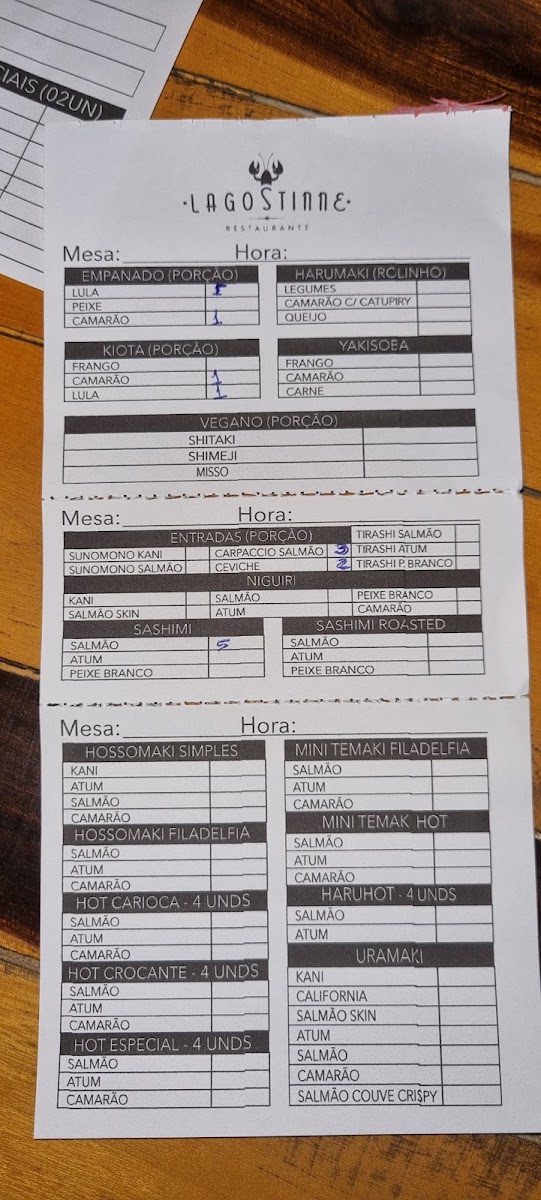 CIAIS (02UN)
LAGOSTINNE
RESTAURANTE
Mesa: Hora:
EMPANADO (PORÇÃO)
LULA 1
PEIXE
CAMARÃO 1
HARUMAKI (ROLINHO)
LEGUMES
CAMARÃO C/ CATUPIRY
QUEIJO
KIOTA (PORÇÃO)
FRANGO
CAMARÃO 1
LULA 1
YAKISOBA
FRANGO
CAMARÃO
CARNE
VEGANO (PORÇÃO)
SHITAKI
SHIMEJI
MISSO
Mesa: Hora:
ENTRADAS (PORÇÃO) TIRASHI SALMÃO
SUNOMONO KANI CARPACCIO SALMÃO 3 TIRASHI ATUM
SUNOMONO SALMÃO CEVICHE 2 TIRASHI P. BRANCO
NIGUIRI
KANI SALMÃO PEIXE BRANCO
SALMÃO SKIN ATUM CAMARÃO
SASHIMI
SALMÃO 5
ATUM
PEIXE BRANCO
SASHIMI ROASTED
SALMÃO
ATUM
PEIXE BRANCO
Mesa: Hora:
HOSSOMAKI SIMPLES
KANI
ATUM
SALMÃO
CAMARÃO
HOSSOMAKI FILADELFIA
SALMÃO
ATUM
CAMARÃO
HOT CARIOCA - 4 UNDS
SALMÃO
ATUM
CAMARÃO
HOT CROCANTE - 4 UNDS
SALMÃO
ATUM
CAMARÃO
HOT ESPECIAL - 4 UNDS
SALMÃO
ATUM
CAMARÃO
MINI TEMAKI FILADELFIA
SALMÃO
ATUM
CAMARÃO
MINI TEMAK HOT
SALMÃO
ATUM
CAMARÃO
HARUHOT - 4 UNDS
SALMÃO
ATUM
URAMAKI
KANI
CALIFORNIA
SALMÃO SKIN
ATUM
SALMÃO
CAMARÃO
SALMÃO COUVE CRISPY